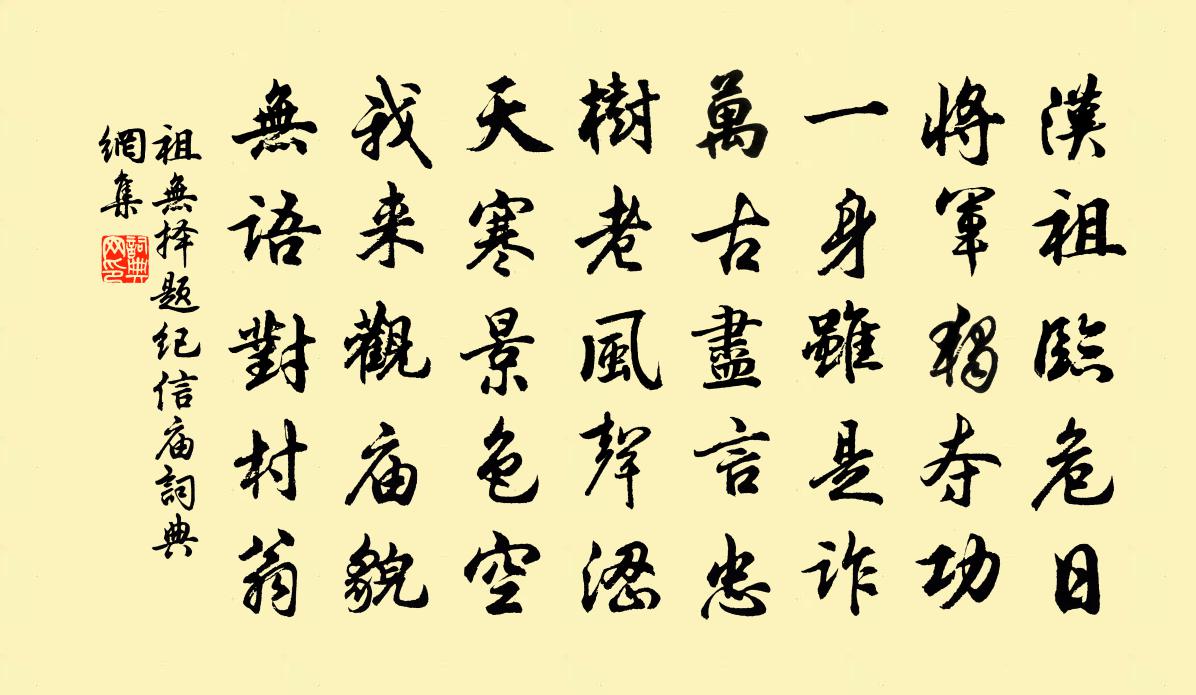 漢祖臨危日
將軍獨夺功
一身雖是诈
萬古盡言忠
樹老風聲澀
天寒景色空
我来觀庙貌
無語對村翁
祖無择题纪信庙詞典
網集
詞典
网印